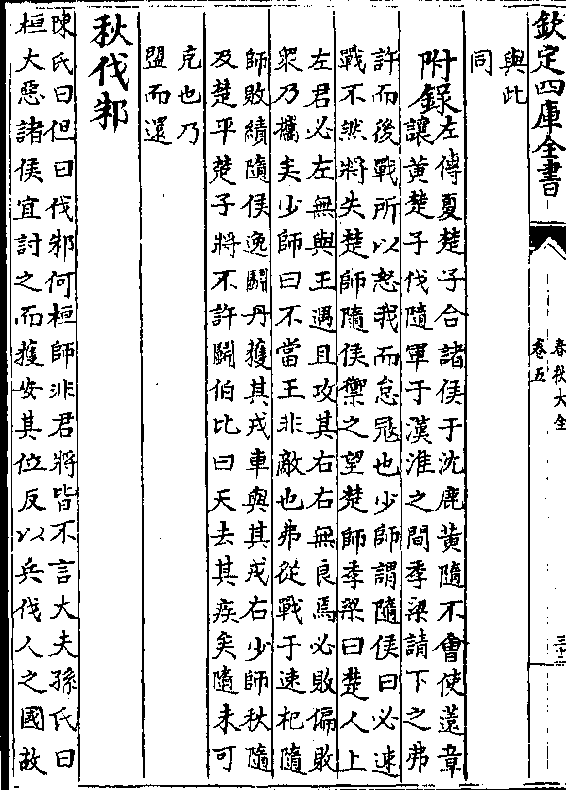 欽定四庫全書
春秋大全
卷五
與此
同
附録左傳夏楚子合諸侯于沈鹿黄隨不㑹使薳章
讓黄楚子伐隨軍于漢淮之間季梁請下之弗
許而後戰所以怒我而怠冦也少師謂隨侯曰必速
戰不然將失楚師隨侯禦之望楚師季梁曰楚人上
左君必左無與王遇且攻其右右無良焉必敗偏敗
衆乃攜矣少師曰不當王非敵也弗從戰于速杞隨
師敗績隨侯逸鬭丹獲其戎車與其戎右少師秋隨
及楚平楚子將不許鬭伯比曰天去其疾矣隨未可
克也乃
盟而還
秋伐邾
陳氏曰但曰伐邾何桓師非君將皆不言大夫孫氏曰
桓大惡諸侯宜討之而獲安其位反以兵伐人之國故